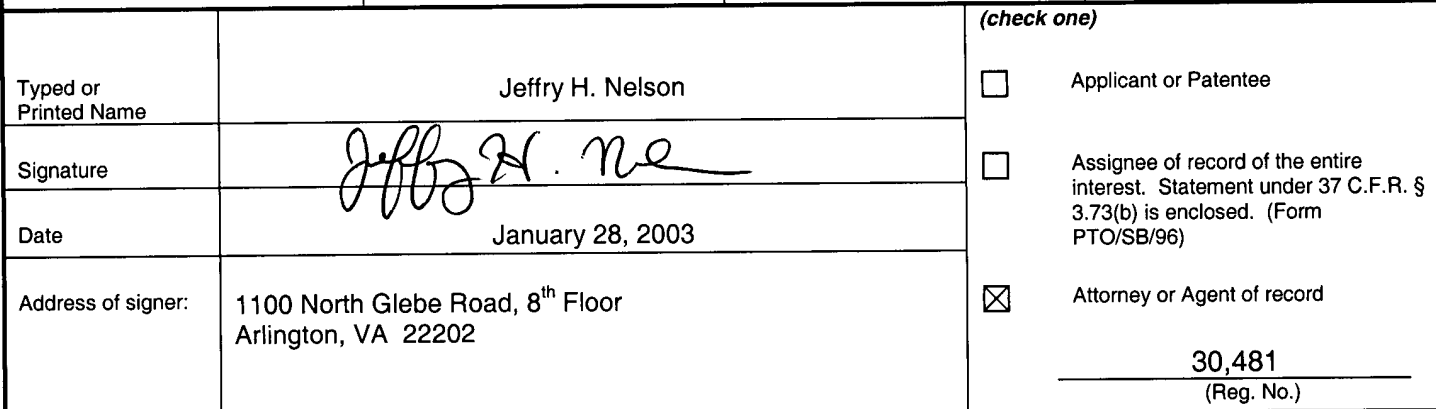 Typed or
Printed Name
Jeffry H. Nelson
Signature
Jeffry H. Nel
Date
January 28, 2003
Address of signer:
1100 North Glebe Road, 8th Floor
Arlington, VA 22202
(check one)
Applicant or Patentee
Assignee of record of the entire
interest. Statement under 37 C.F.R. §
3.73(b) is enclosed. (Form
PTO/SB/96)
☒ Attorney or Agent of record
30,481
(Reg. No.)